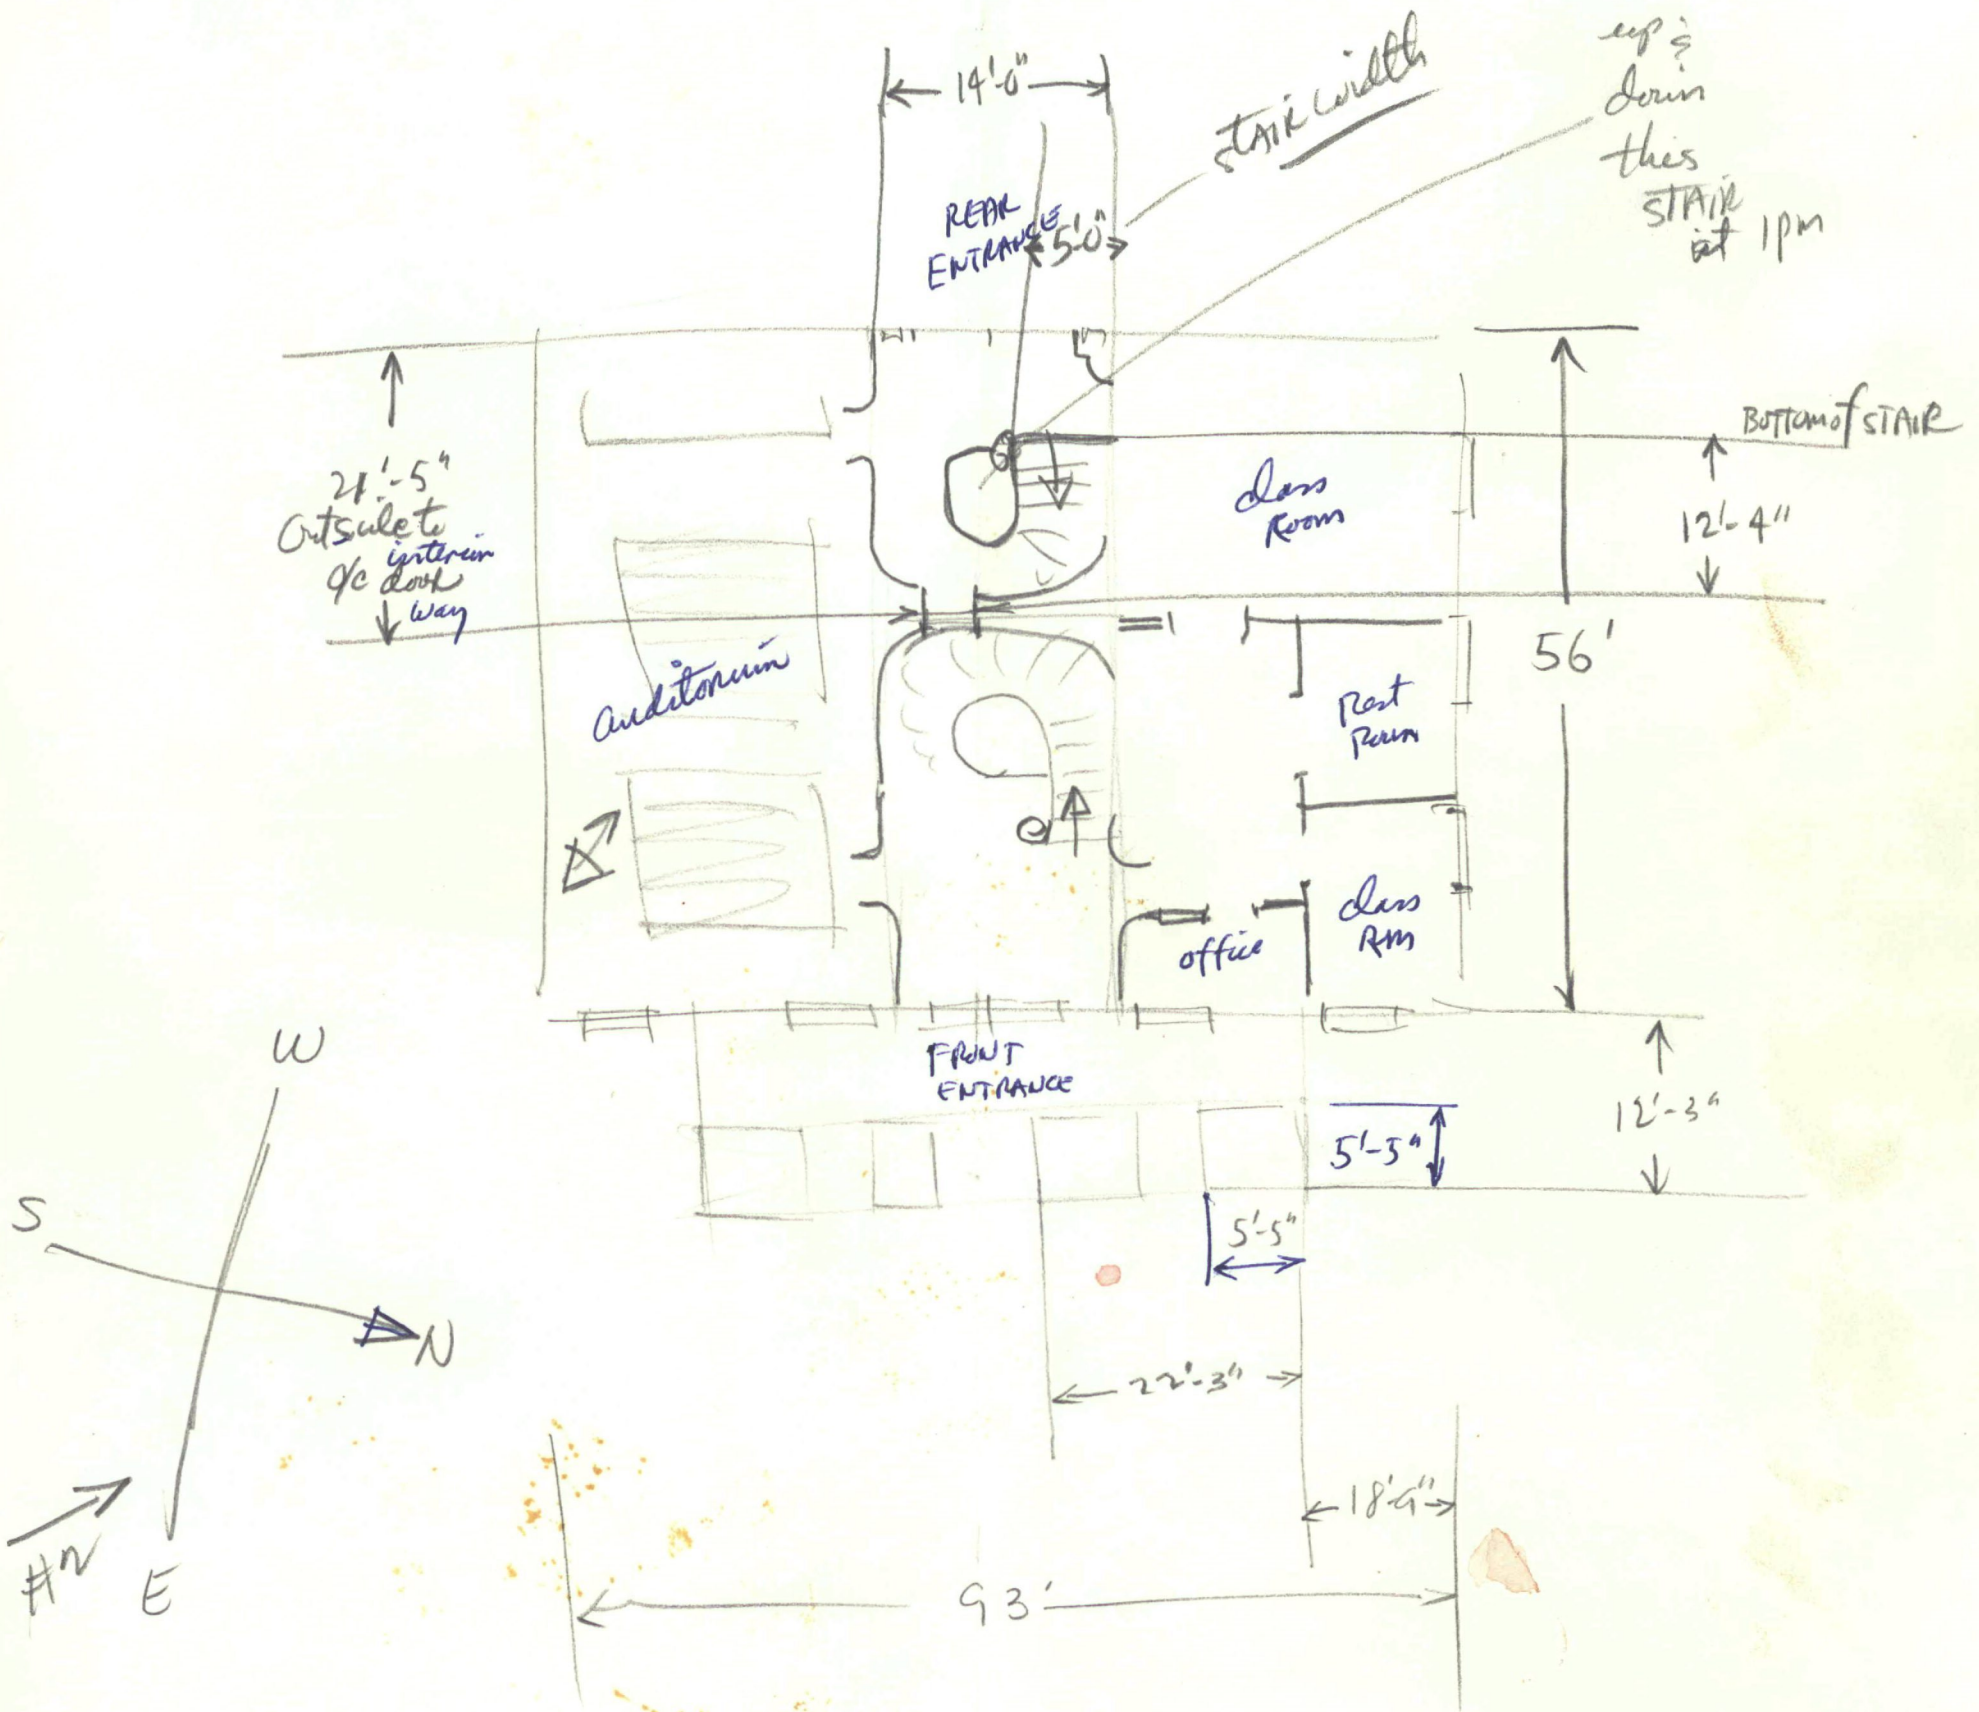 14'-0"
STAIR width
up &
down
this
STAIR
at 1pm
REAR
ENTRANCE
5'-0"
Bottom of STAIR
21'-5"
Outside to
interior
door
way
class
Room
12'-4"
56'
auditorium
Rest
Room
class
Rm
office
FRONT
ENTRANCE
W
12'-3"
5'-5"
S
5'-5"
N
22'-3"
18'-9"
E
93'